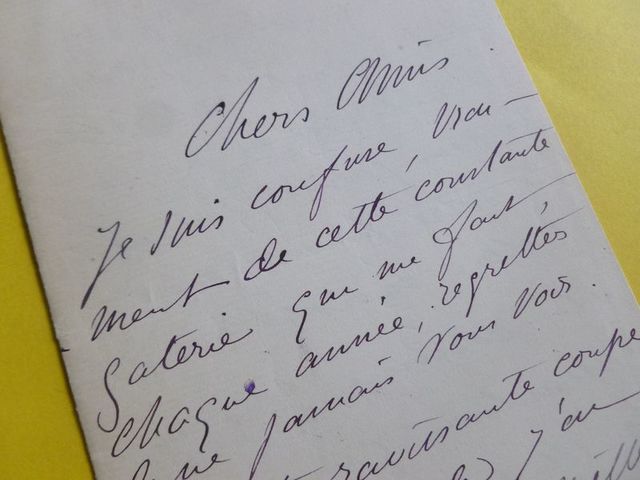 Chers Amis
Je suis confuse, vrai-
ment de cette constante
gaterie que me font,
chaque année, regrettés
ne jamais vous voir.
ravissante coupe
j'ai